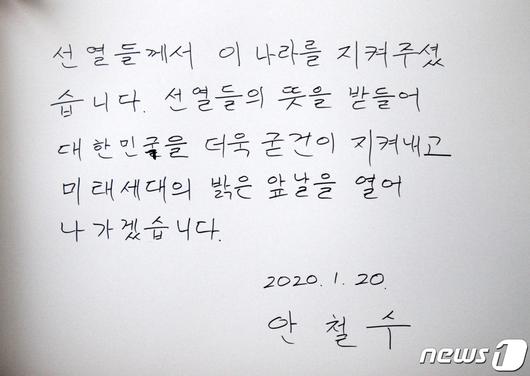 선열들께서 이 나라를 지켜주셨
습니다. 선열들의 뜻을 받들어
대한민국을 더욱 굳건이 지켜내고
미래세대의 밝은 앞날을 열어
나가겠습니다.
2020. 1. 20.
안 철 수
news1